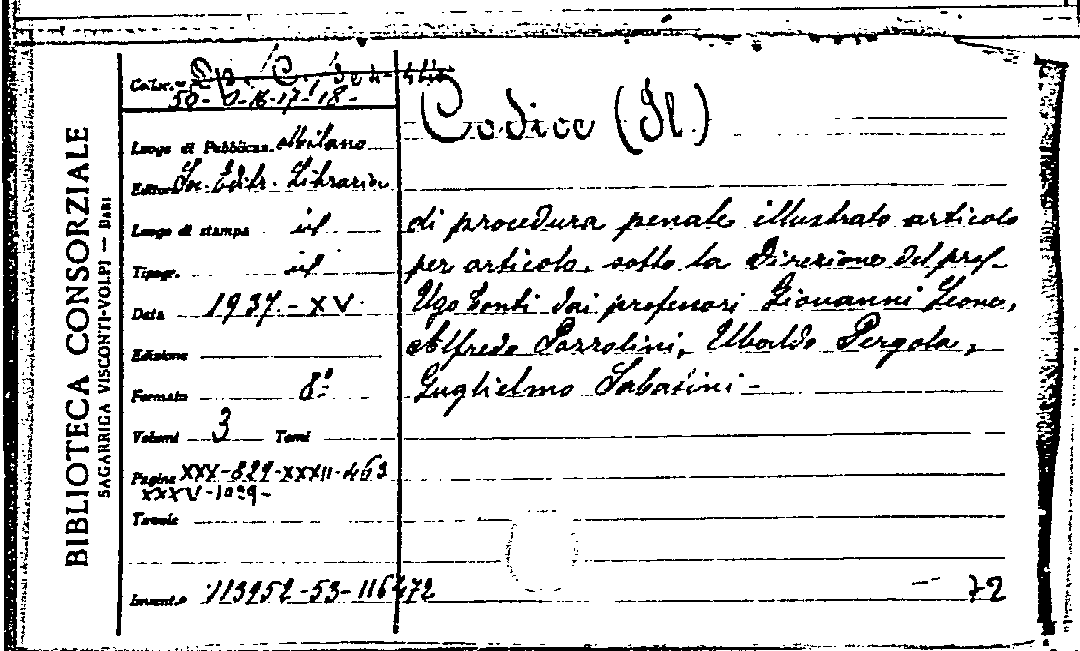 BIBLIOTECA CONSORZIALE
SAGARRIGA VISCONTI-VOLPI — BARI
Colloc.
50-D-16-17-18-
Luogo di Pubblicaz. Milano
Editore Soc. Editr. Libraria
Luogo di stampa id
Tipogr. id
Data 1937-XV
Edizione
Formato 8º
Volumi 3 Tomi
Pagine XXX-829-XXXII-463
XXXV-1029-
Tavole
Invent.o 113952-53-116472
Codice (Il)
di procedura penale illustrato articolo
per articolo, sotto la Direzione del prof.
Ugo Conti dai professori Giovanni Leone,
Alfredo Pozzolini, Ubaldo Pergola,
Guglielmo Sabatini-
72